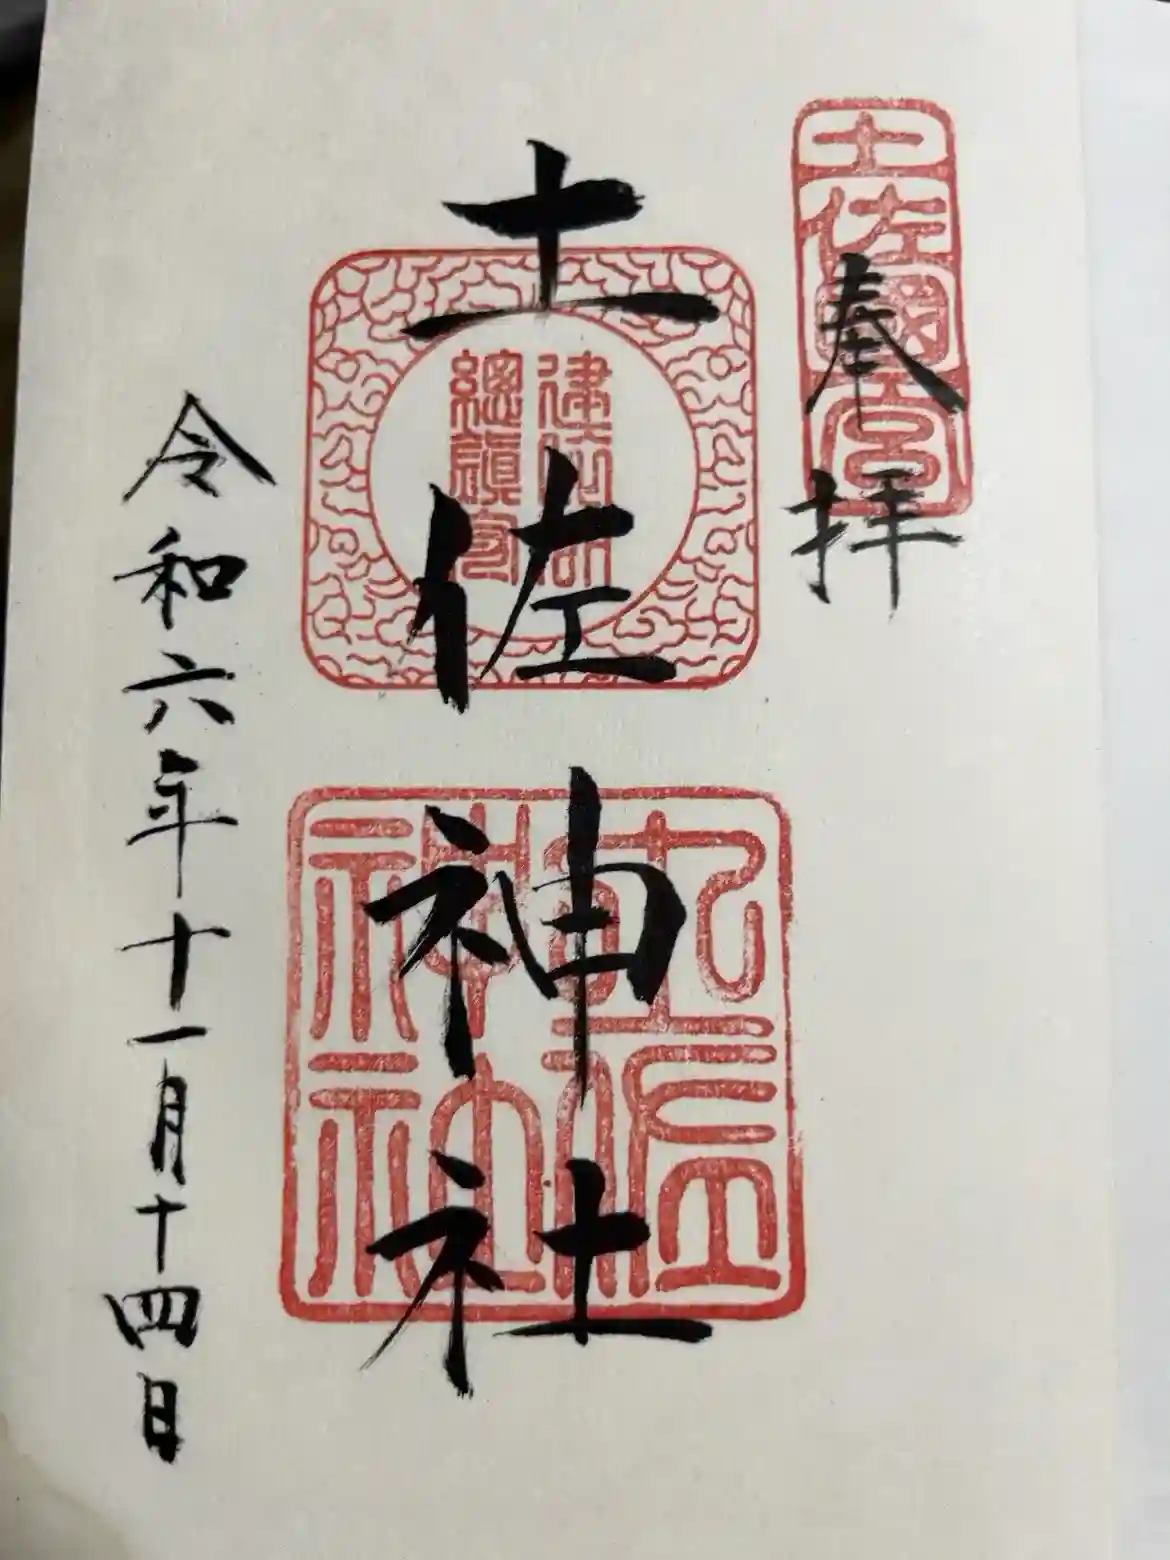 土佐國一宮
奉拝
建依別
總鎮守
土佐神社
土佐
神社
令和六年十一月十四日